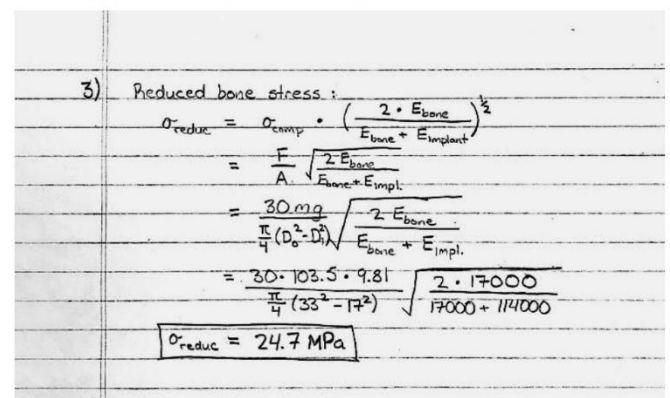 3) Reduced bone stress :
σreduc = σcomp • (2 • Ebone / Ebone + Eimplant)^½
= F/A √(2 Ebone / Ebone + Eimpl.)
= 30mg / π/4 (Do² - Di²) √(2 Ebone / Ebone + Eimpl.)
= 30 • 103.5 • 9.81 / π/4 (33² - 17²) √(2 • 17000 / 17000 + 114000)
σreduc = 24.7 MPa